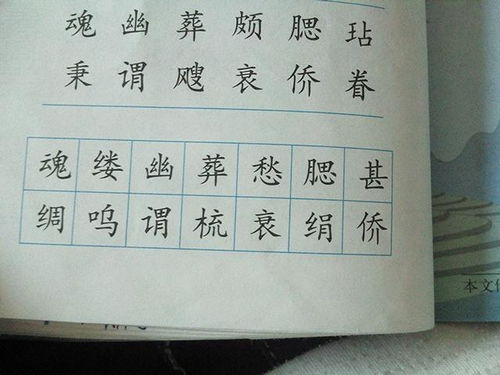 魂幽葬颇腮玷
秉谓飕衰侨眷
魂缕幽葬愁腮甚
绸呜谓梳衰绢侨
本文